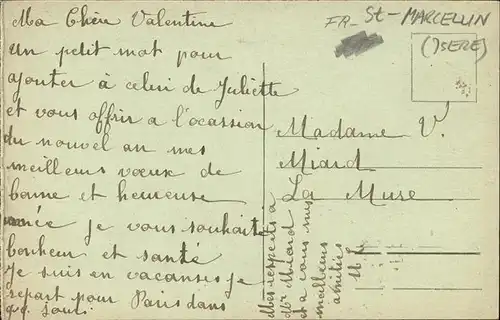 Ma Chère Valentine
un petit mot pour
ajouter à celui de Juliette
et vous offrir a l'ocassion
du nouvel an mes
meilleurs vœux de
bonne et heureuse
année je vous souhaite
bonheur et santé
Je suis en vacances je
repart pour Paris dans
qq. jours.
FR - St - MARCELLIN
(ISERE)
Madame V.
Miard
La Mure
Mes respects à
Mr Miard
et a vous mes
meilleurs
amitiés